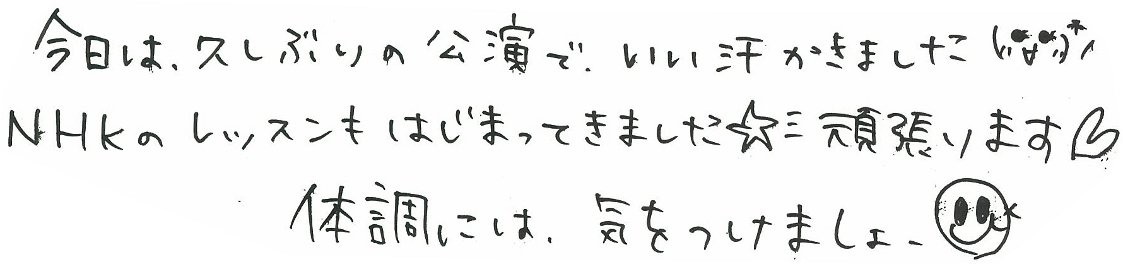 今日は、久しぶりの公演で、いい汗かきました(("▽"))*
NHKのレッスンもはじまってきました☆ミ頑張ります♡
体調には、気をつけましょー